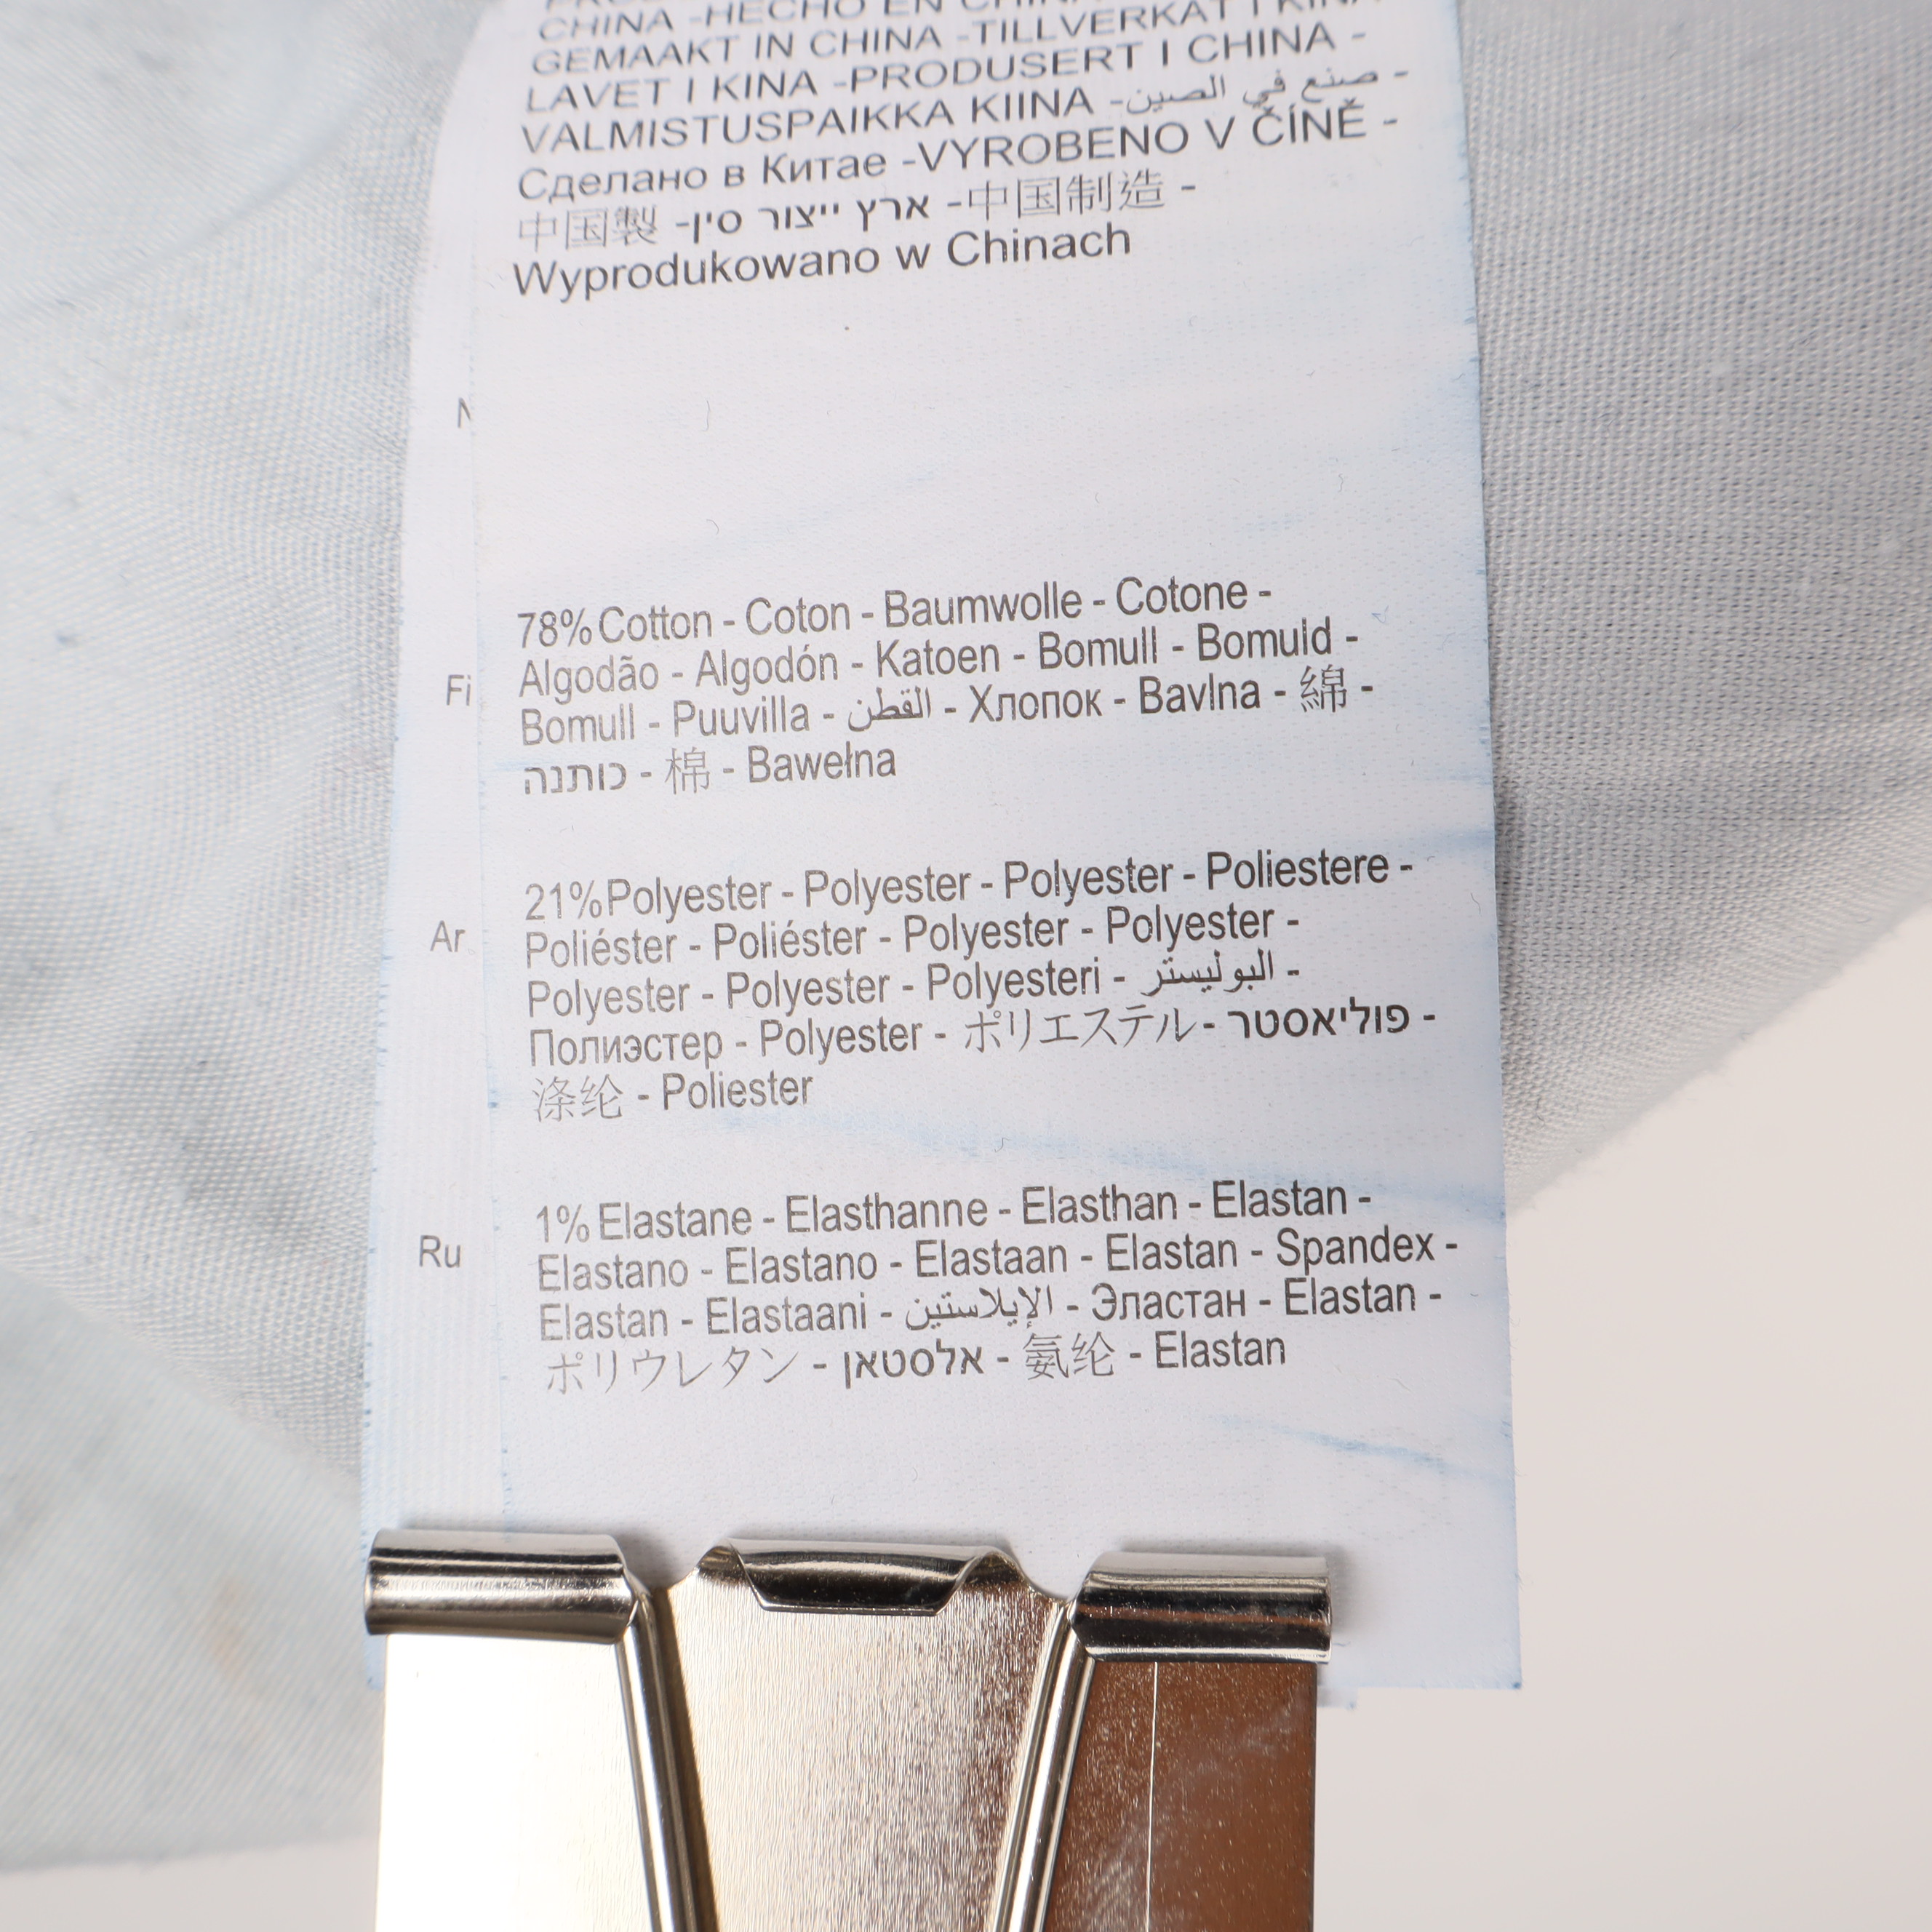 CHINA -HECHO EN
GEMAAKT IN CHINA -TILLVERKAT I KINA
LAVET I KINA -PRODUSERT I CHINA -
VALMISTUSPAIKKA KIINA -صنع في الصين -
Сделано в Китае -VYROBENO V ČÍNĚ -
中国製 -ארץ ייצור סין -中国制造 -
Wyprodukowano w Chinach
78% Cotton - Coton - Baumwolle - Cotone -
Algodão - Algodón - Katoen - Bomull - Bomuld -
Bomull - Puuvilla - القطن - Хлопок - Bavlna - 綿 -
כותנה - 棉 - Bawełna
21% Polyester - Polyester - Polyester - Poliestere -
Poliéster - Poliéster - Polyester - Polyester -
Polyester - Polyester - Polyesteri - البوليستر -
Полиэстер - Polyester - ポリエステル - פוליאסטר -
涤纶 - Poliester
1% Elastane - Elasthanne - Elasthan - Elastan -
Elastano - Elastano - Elastaan - Elastan - Spandex -
Elastan - Elastaani - الإيلاستين - Эластан - Elastan -
ポリウレタン - אלסטאן - 氨纶 - Elastan
Fi
Ar
Ru